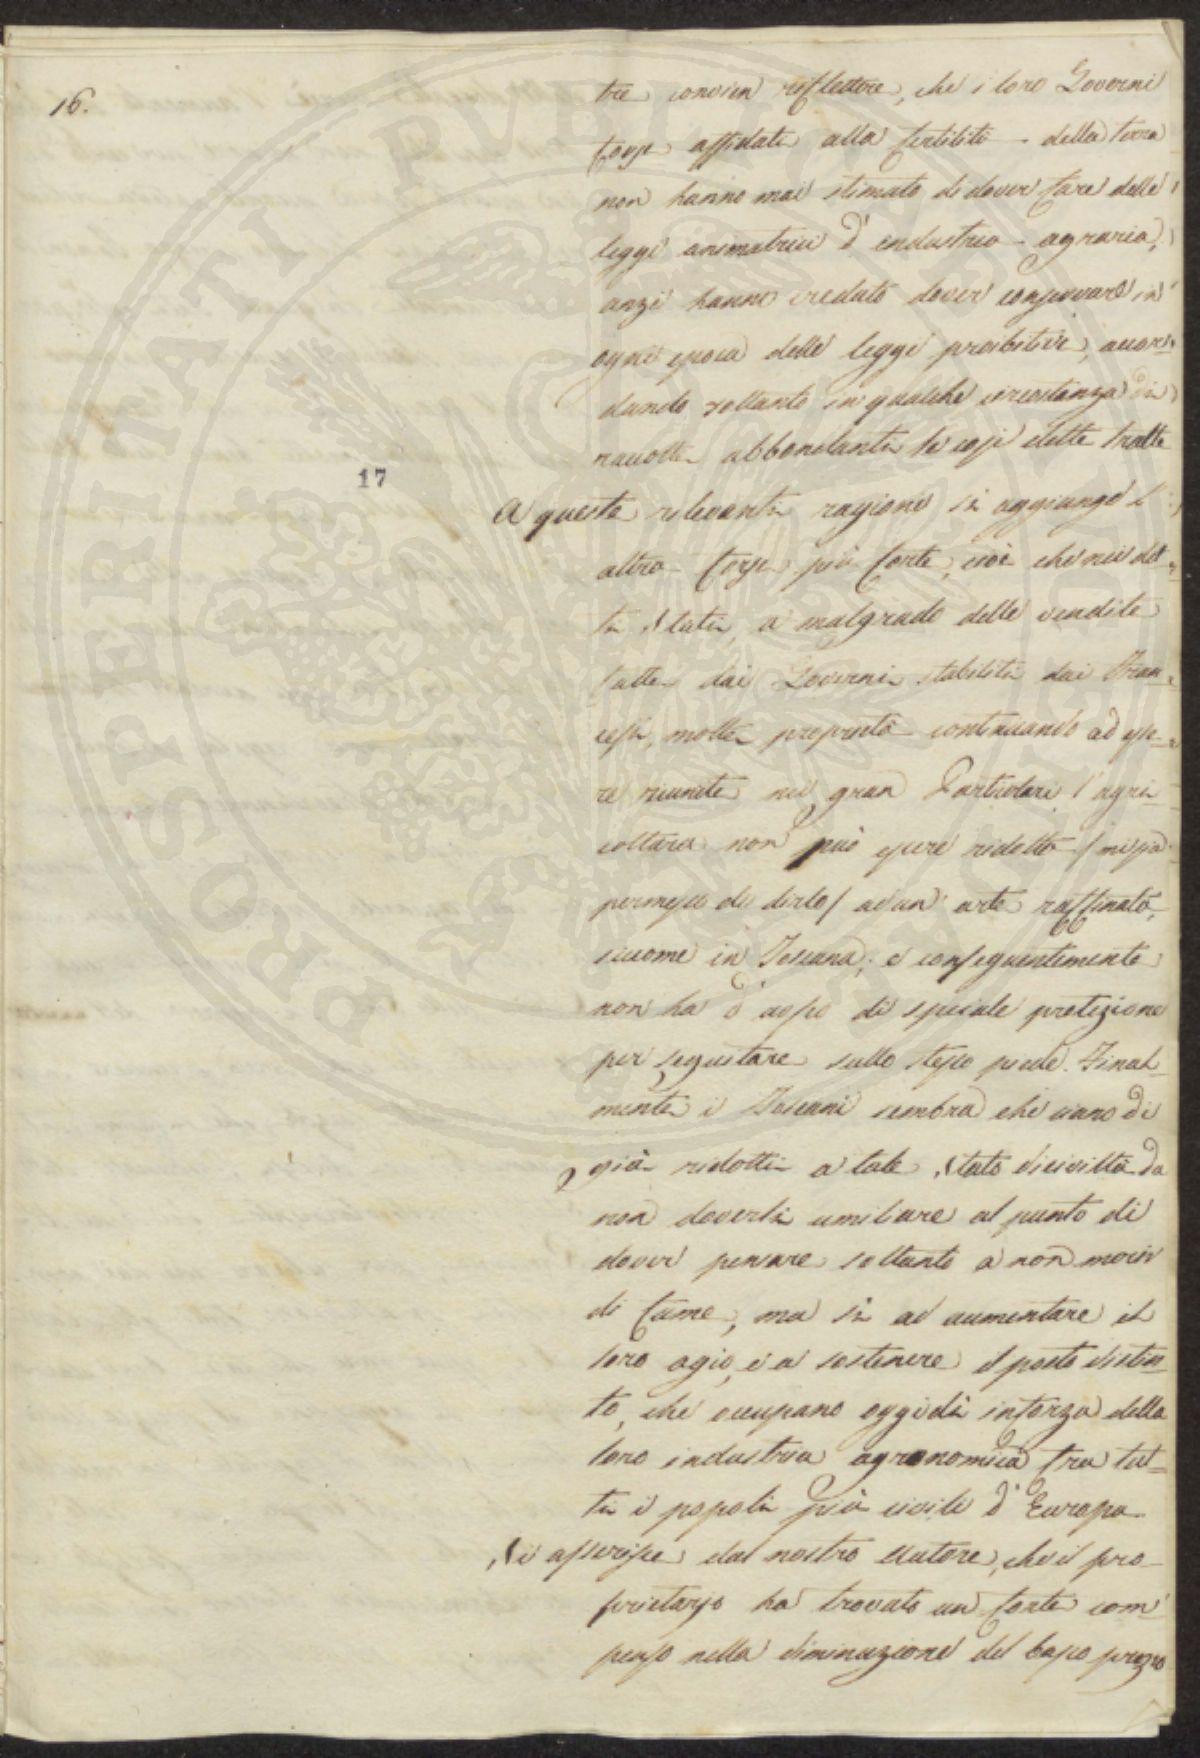 16.
tre convien riflettere, che i loro Governi
forse affidati alla fertilità della terra
non hanno mai stimato di dover fare delle
leggi animatrici d'industria agraria,
anzi hanno creduto dover conservare in
ogni epoca delle leggi proibitive, accor-
dando soltanto in qualche circostanza di
raccolte abbondanti le così dette tratte
17
A queste rilevanti ragioni si aggiunge l'
altra forse più forte, cioè che nei det-
ti Stati, a malgrado delle vendite
fatte dai Governi stabiliti dai Fran-
cesi, molte proprietà continuando ad esse-
re riunite nei gran Particolari l'agri-
coltura non può essere ridotta /mi sia
permesso di dirlo/ ad un'arte raffinata,
siccome in Toscana; e conseguentemente
non ha d'uopo di speciale protezione
per seguitare sullo stesso piede. Final-
mente i Toscani sembra che siano di
già ridotti a tale Stato di civiltà da
non doverli umiliare al punto di
dover pensare soltanto a non morir
di fame, ma sì ad aumentare il
loro agio, e a sostenere il posto distin-
to, che occupano oggidì in forza della
loro industria agronomica fra tut-
ti i popoli più civili d'Europa
Si asserisce dal nostro Autore, che il pro-
prietario ha trovato un forte com-
penso nella diminuzione del basso prezzo
PROSPERITATI PUBLICAE